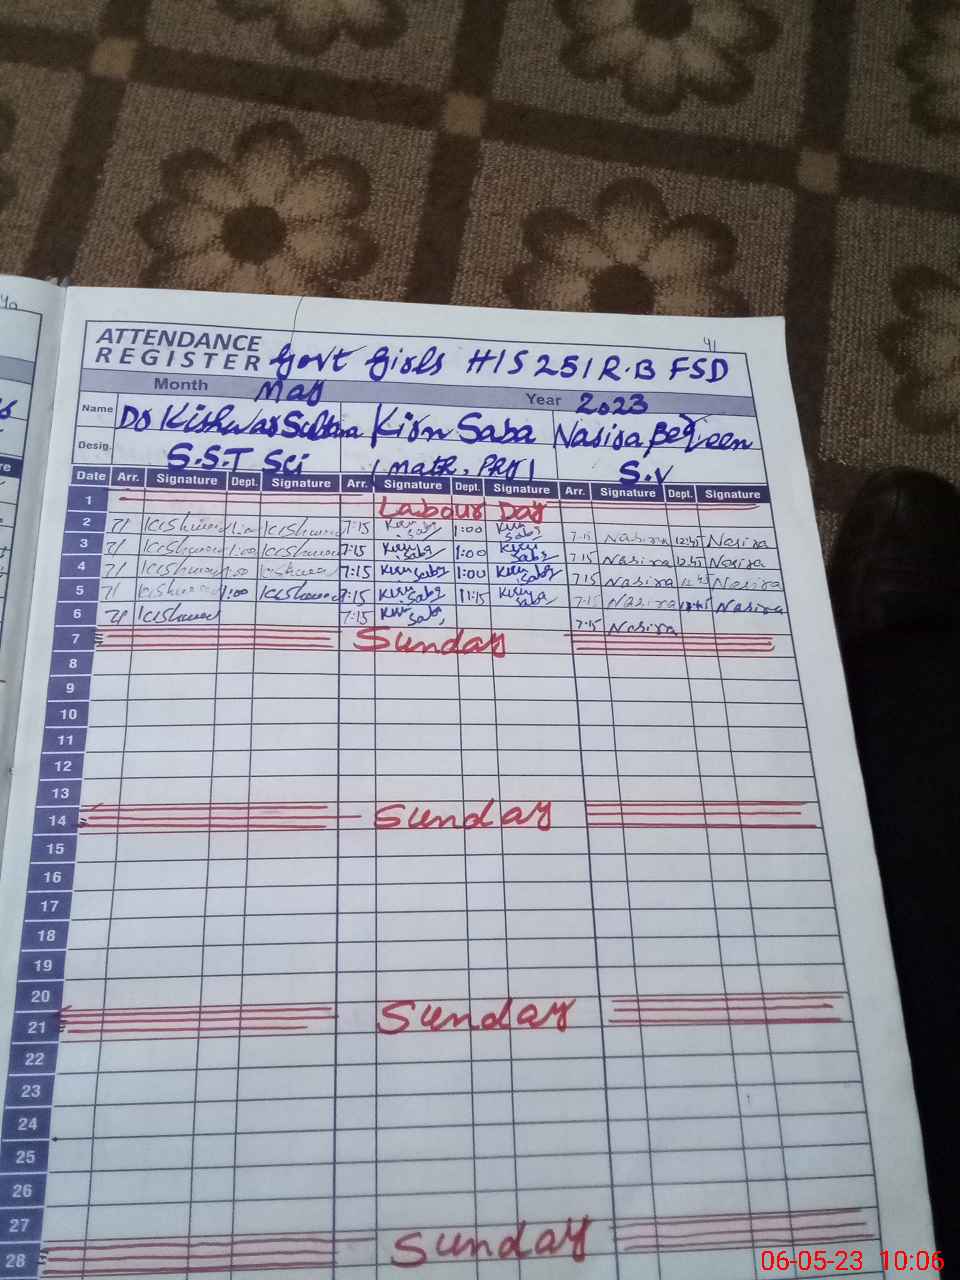 41
ATTENDANCE
REGISTER Govt Girls H/S 251 R.B FSD
Month May Year 2023
Name Dr Kishwar Sultana Kirn Saba Nasira Begum
Desig. S.S.T Sci (Math, PRT) S.V
Date Arr. Signature Dept. Signature Arr. Signature Dept. Signature Arr. Signature Dept. Signature
1 Labour Day
2 7/ Kishwar 1:00 Kishwar 7:15 Kirn Saba 1:00 Kirn Saba 7:15 Nasira 12:45 Nasira
3 7/ Kishwar 1:00 Kishwar 7:15 Kirn Saba 1:00 Kirn Saba 7:15 Nasira 12:45 Nasira
4 7/ Kishwar 1:00 Kishwar 7:15 Kirn Saba 1:00 Kirn Saba 7:15 Nasira 12:45 Nasira
5 7/ Kishwar 1:00 Kishwar 7:15 Kirn Saba 11:15 Kirn Saba 7:15 Nasira Nasira
6 7/ Kishwar 7:15 Kirn Saba 7:15 Nasira
7 Sunday
8
9
10
11
12
13
14 Sunday
15
16
17
18
19
20
21 Sunday
22
23
24
25
26
27
28 Sunday
06-05-23 10:06